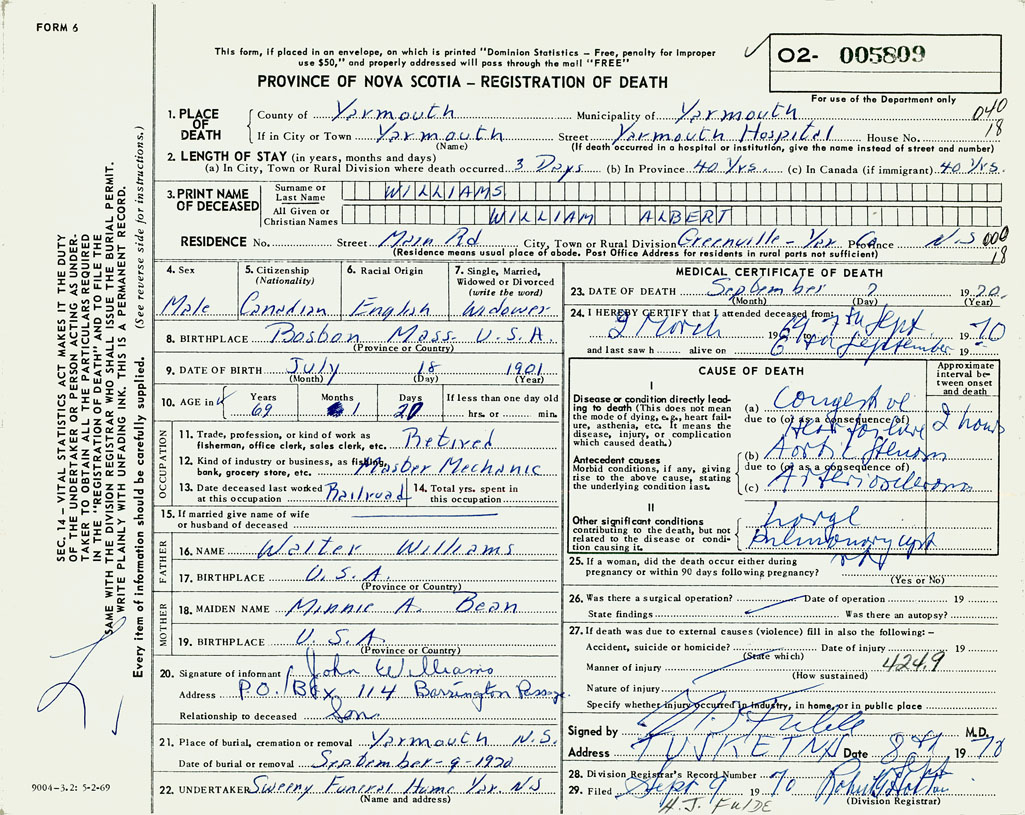 FORM 6
This form, if placed in an envelope, on which is printed "Dominion Statistics – Free, penalty for improper
use $50," and properly addressed will pass through the mail "FREE"
02- 005809
PROVINCE OF NOVA SCOTIA – REGISTRATION OF DEATH
For use of the Department only
1. PLACE OF DEATH County of Yarmouth Municipality of Yarmouth 040
If in City or Town Yarmouth Street Yarmouth Hospital House No. 18
(Name) (If death occurred in a hospital or institution, give the name instead of street and number)
2. LENGTH OF STAY (in years, months and days)
(a) In City, Town or Rural Division where death occurred 3 Days (b) In Province 40 Yrs. (c) In Canada (if immigrant) 40 Yrs.
3. PRINT NAME OF DECEASED Surname or Last Name WILLIAMS
All Given or Christian Names WILLIAM ALBERT
RESIDENCE No. Street Main Rd City, Town or Rural Division Greenville – Yar. Co Province N.S 000
(Residence means usual place of abode. Post Office Address for residents in rural parts not sufficient) 18
4. Sex 5. Citizenship (Nationality) 6. Racial Origin 7. Single, Married, Widowed or Divorced (write the word)
Male Canadian English Widower
8. BIRTHPLACE Boston Mass. U.S.A.
(Province or Country)
9. DATE OF BIRTH July 18 1901
(Month) (Day) (Year)
10. AGE in Years Months Days If less than one day old
69 1 20 hrs. or min.
OCCUPATION
11. Trade, profession, or kind of work as
fisherman, office clerk, sales clerk, etc. Retired
12. Kind of industry or business, as fishing,
bank, grocery store, etc. Master Mechanic
13. Date deceased last worked at this occupation Railroad 14. Total yrs. spent in this occupation
15. If married give name of wife
or husband of deceased
FATHER
16. NAME Walter Williams
17. BIRTHPLACE U.S.A.
(Province or Country)
MOTHER
18. MAIDEN NAME Minnie A. Bean
19. BIRTHPLACE U.S.A
(Province or Country)
20. Signature of informant John Williams
Address P.O. Box 114 Barrington Passage
Relationship to deceased Son
21. Place of burial, cremation or removal Yarmouth N.S.
Date of burial or removal September - 9 - 1970
22. UNDERTAKER Sweeny Funeral Home Yar. NS
(Name and address)
MEDICAL CERTIFICATE OF DEATH
23. DATE OF DEATH September 7 1970
(Month) (Day) (Year)
24. I HEREBY CERTIFY that I attended deceased from:
2 March 1969 7th Sept 1970
and last saw h alive on September 19
CAUSE OF DEATH
Approximate interval between onset and death
I
Disease or condition directly leading to death (This does not mean
the mode of dying, e.g., heart failure, asthenia, etc. It means the
disease, injury, or complication
which caused death.)
(a) Congestive
due to (or as a consequence of)
Heart failure 2 hours
Antecedent causes
Morbid conditions, if any, giving
rise to the above cause, stating
the underlying condition last.
(b) Aortic Stenosis
due to (or as a consequence of)
(c) Arteriosclerosis
II
Other significant conditions
contributing to the death, but not
related to the disease or condition causing it.
Large
Pulmonary cyst
25. If a woman, did the death occur either during
pregnancy or within 90 days following pregnancy?
(Yes or No)
26. Was there a surgical operation? Date of operation 19
State findings Was there an autopsy?
27. If death was due to external causes (violence) fill in also the following: –
Accident, suicide or homicide? Date of injury 19
(State which)
Manner of injury 4249
(How sustained)
Nature of injury
Specify whether injury occurred in industry, in home, or in public place
Signed by H J Fulde M.D.
Address TUSKET NS Date 8th Sept 1970
28. Division Registrar's Record Number
29. Filed Sept 9 1970
(Division Registrar)
H. J. FULDE
SEC. 14 – VITAL STATISTICS ACT MAKES IT THE DUTY
OF THE UNDERTAKER OR PERSON ACTING AS UNDER-
TAKER TO OBTAIN ALL THE PARTICULARS REQUIRED
IN THE "REGISTRATION OF DEATH" AND TO FILE THE
SAME WITH THE DIVISION REGISTRAR WHO SHALL ISSUE THE BURIAL PERMIT.
WRITE PLAINLY WITH UNFADING INK. THIS IS A PERMANENT RECORD.
Every item of information should be carefully supplied. (See reverse side for instructions.)
9004-3.2: 5-2-69